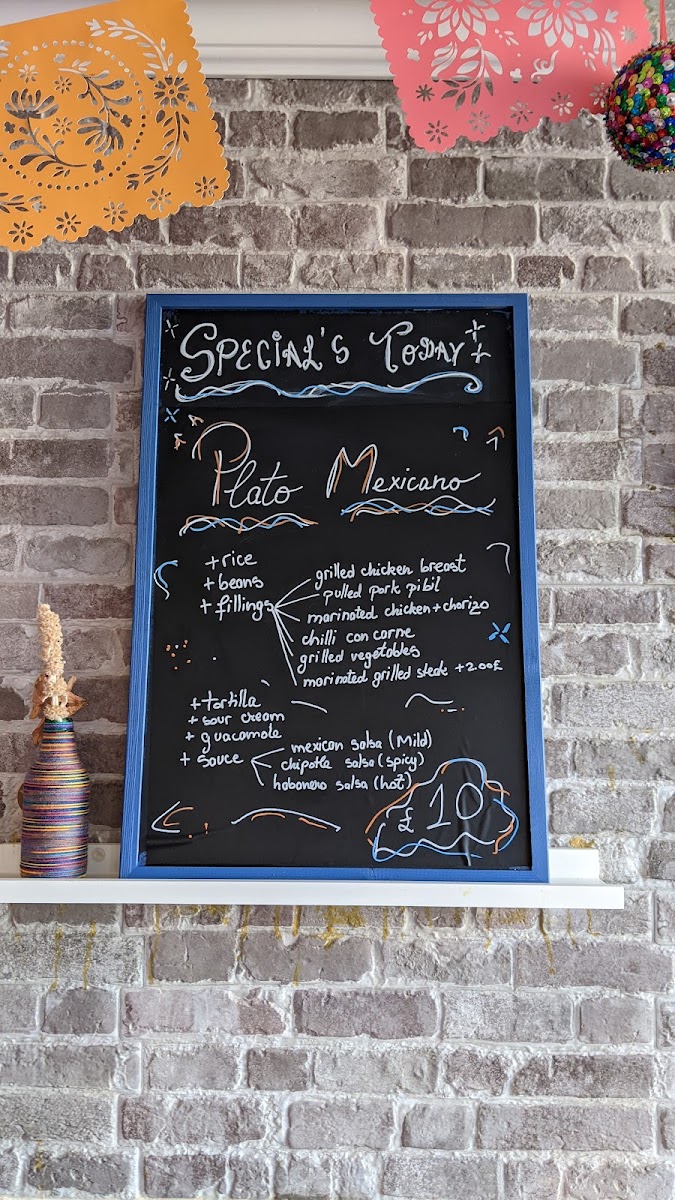 SPECIAL'S TODAY
Plato Mexicano
+ rice
+ beans
+ fillings
grilled chicken breast
pulled pork pibil
marinated chicken + chorizo
chilli con carne
grilled vegetables
marinated grilled steak +2.00£
+ tortilla
+ sour cream
+ guacamole
+ sauce
mexican salsa (Mild)
chipotle salsa (spicy)
habanero salsa (hot)
£10